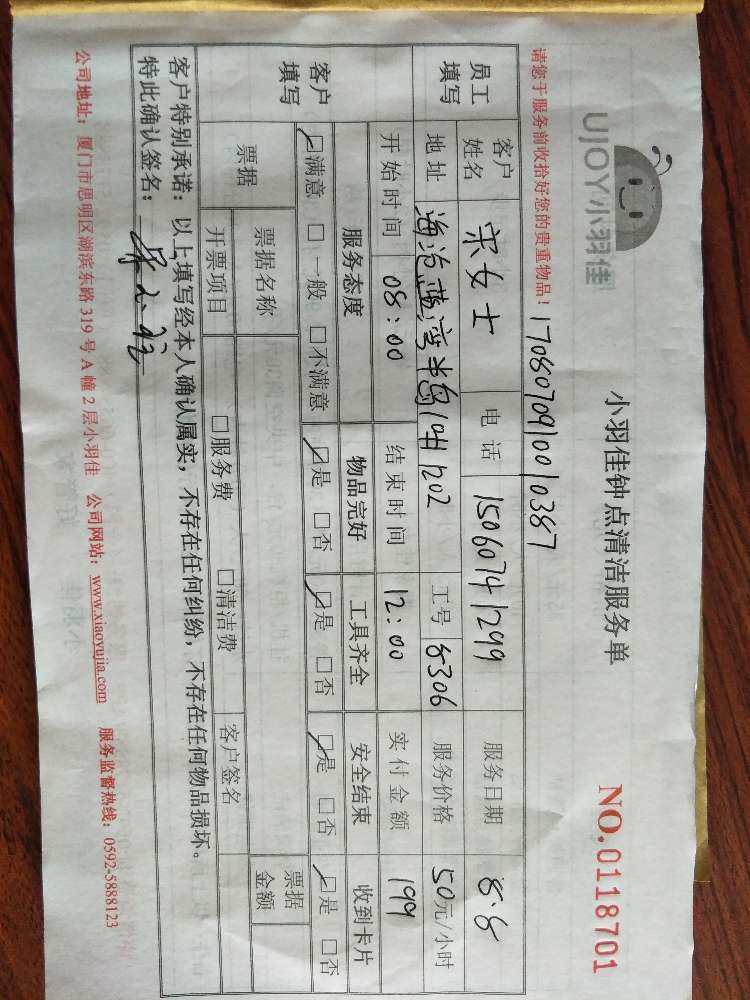 UJOY小羽佳
小羽佳钟点清洁服务单
NO.0118701
请您于服务前收拾好您的贵重物品！ 1708070910010387
员工填写 客户姓名 宋女士 电话 15060741299 服务日期 8.8
地址 海沧蓝湾半岛19#1202 工号 8306 服务价格 50元/小时
开始时间 08:00 结束时间 12:00 实付金额 199
客户填写 服务态度 物品完好 工具齐全 安全结束 收到卡片
☑满意 □一般 □不满意 ☑是 □否 ☑是 □否 ☑是 □否 ☑是 □否
票据 票据名称 票据金额
开票项目 □服务费 □清洁费 客户签名
客户特别承诺：以上填写经本人确认属实，不存在任何纠纷，不存在任何物品损坏。
特此确认签名：
公司地址：厦门市思明区湖滨东路319号A幢2层小羽佳 公司网站：www.xiaoyujia.com 服务监督热线：0592-5888123